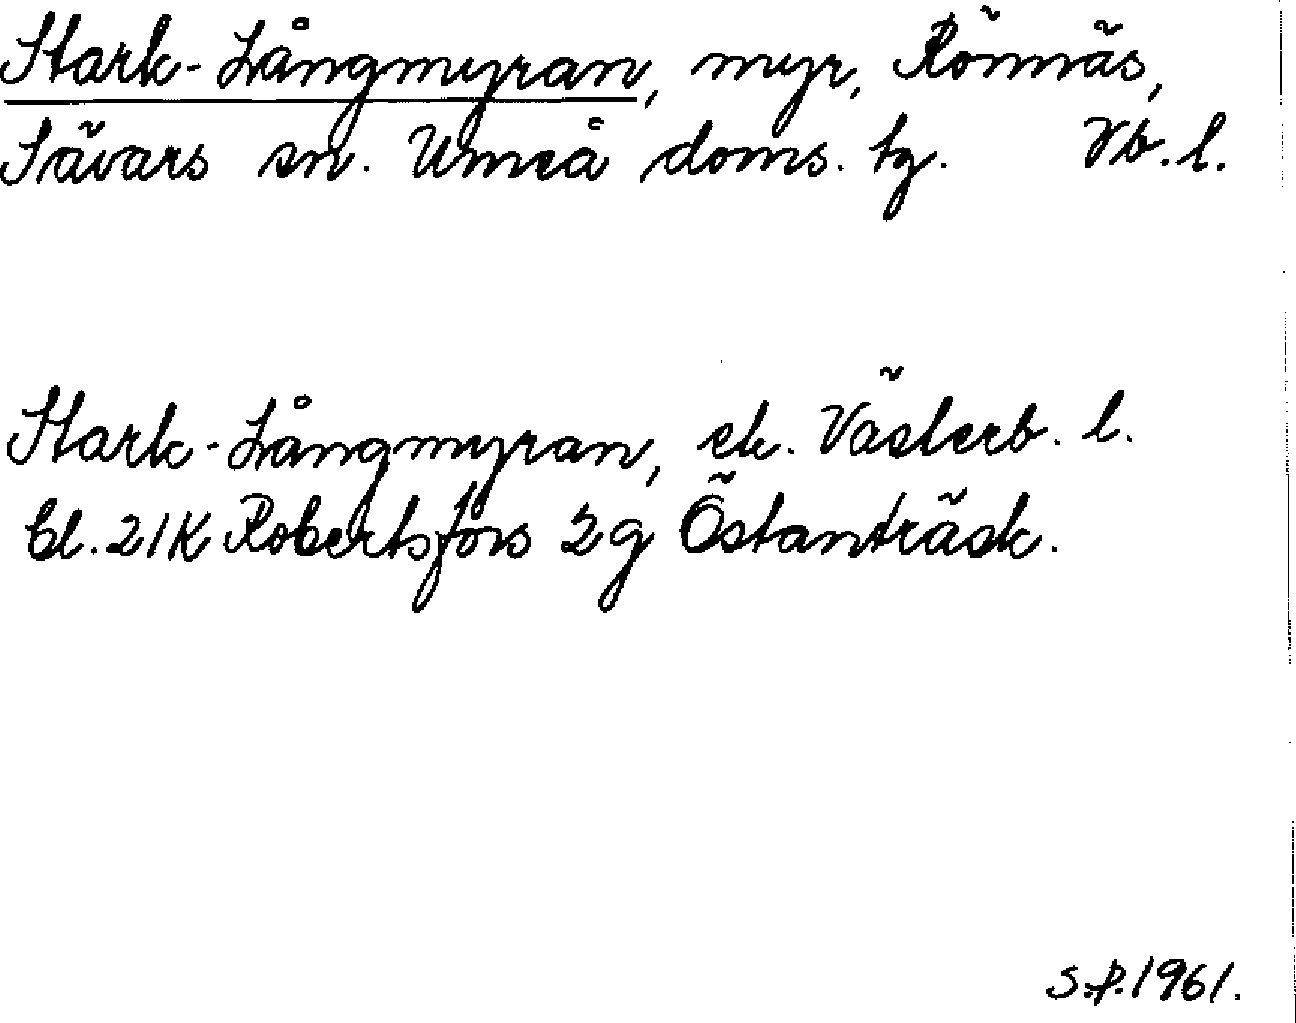 Stark-Långmyran, myr, Rönnäs,
Sävars sn. Umeå doms. tg. Vb. l.
Stark-Långmyran, ek. Västerb. l.
bl. 21K Robertsfors 2g Östanträsk.
S.P. 1961.